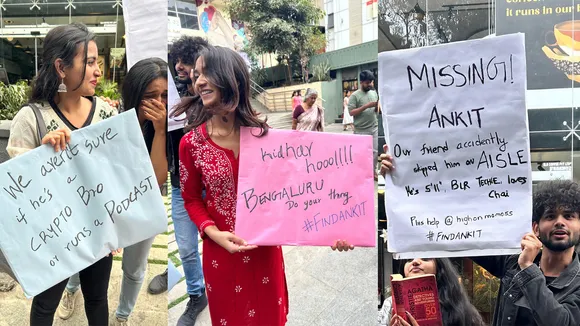 We aren't sure
if he's a
CRYPTO BRO
or runs a PODCAST
Kidhar
hooo!!!!
BENGALURU
Do your thing.
#FINDANKIT
MISSING!
ANKIT
Our friend accidently
swiped him on AISLE
He's 5'11", BLR TECHIE, loves
Chai
Pls help @highonmomoss
#FINDANKIT
it runs in our b
AGATHA
50